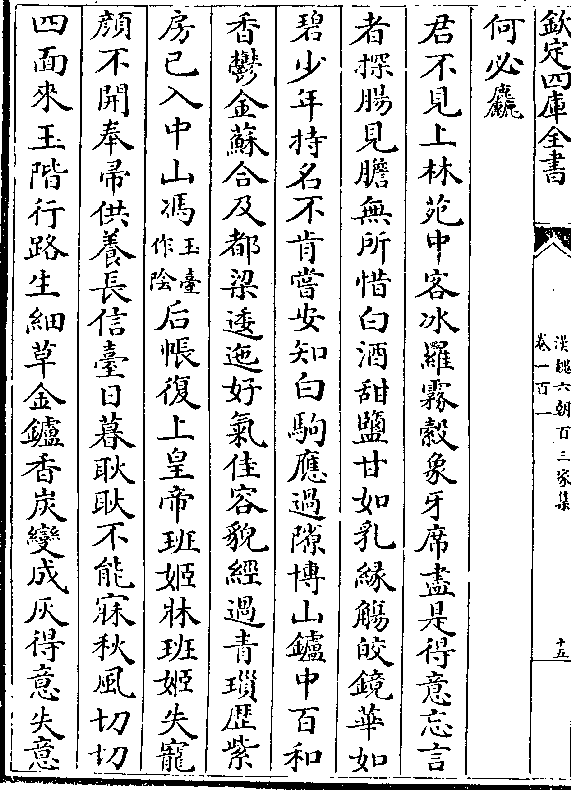 欽定四庫全書
漢魏六朝百三家集
卷一百一
十五
何必麤
君不見上林苑中客冰羅霧縠象牙席盡是得意忘言
者探腸見膽無所惜白酒甜鹽甘如乳緑觴皎鏡華如
碧少年持名不肯嘗安知白駒應過隙博山鑪中百和
香鬱金蘇合及都梁逶迤好氣佳容貌經過青瑣歴紫
房已入中山馮玉臺作陰后帳復上皇帝班姬牀班姬失寵
顔不開奉帚供養長信臺日暮耿耿不能寐秋風切切
四面來玉階行路生細草金鑪香炭變成灰得意失意